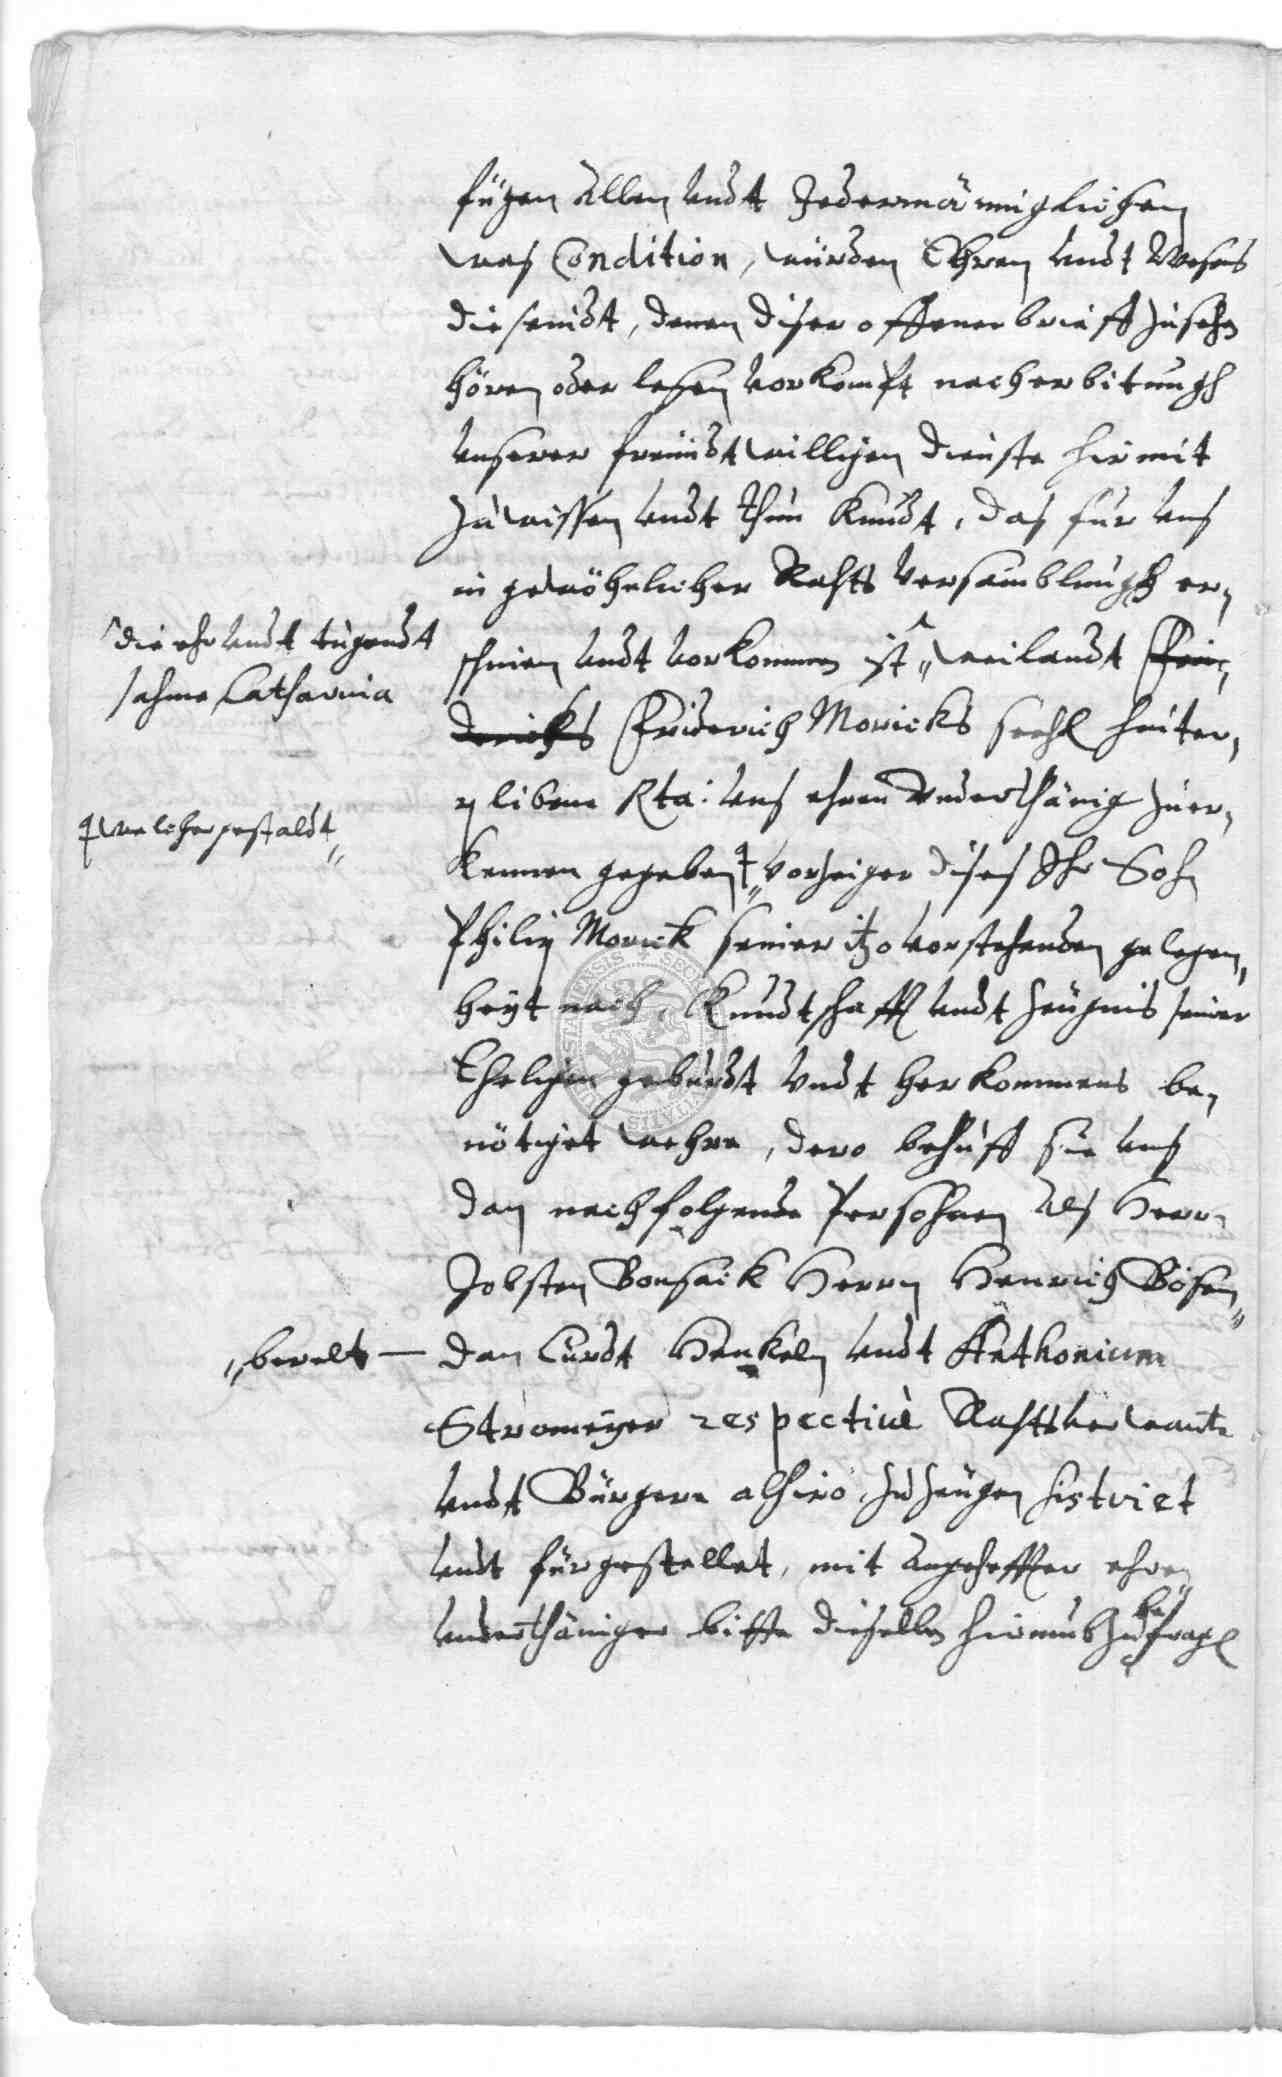 fügen Allen undt Jedermänniglichen
was Condition, würden Ehren undt Wesens
die seindt, denen diser offener brieff zusehn
hören oder lesen vorkompt nach erbitungh
unserer freündtwilligen dienste hirmit
zu wissen undt thun kundt, das für uns
in gewöhnlicher Rahts versamblungh er,
schinen undt vorkommen ist „ weilandt Frie,
dericks Friderich Moricks seehl hinter,
libene Rta: uns ehren underthänig zuer,
kennen gegeben „ vorzeiger dises Ihr Sohn
Philip Morick seiner itzo vorstehenden gelegen,
heyt nach, Kundtschafft undt zeügnis seiner
Ehelichen geburdt undt herkommens be,
nötiget wehre, dero behuff sie uns
dan nachfolgende Persohnen als Herrn
Jobsten Bonsack Herrn Henrich Bösen„
dan Curdt Henkeln undt Anthonium
Stromeyer respectivè Rahtsverwante
undt Bürgere alhiro, zu zeügen sistriet
undt fürgestellet, mit angeheffter ehren
underthäniger bitte dieselben hirumb zu befragen
die ehr undt tugendt
sahme Catharina
welcher gestaldt„
„berelts